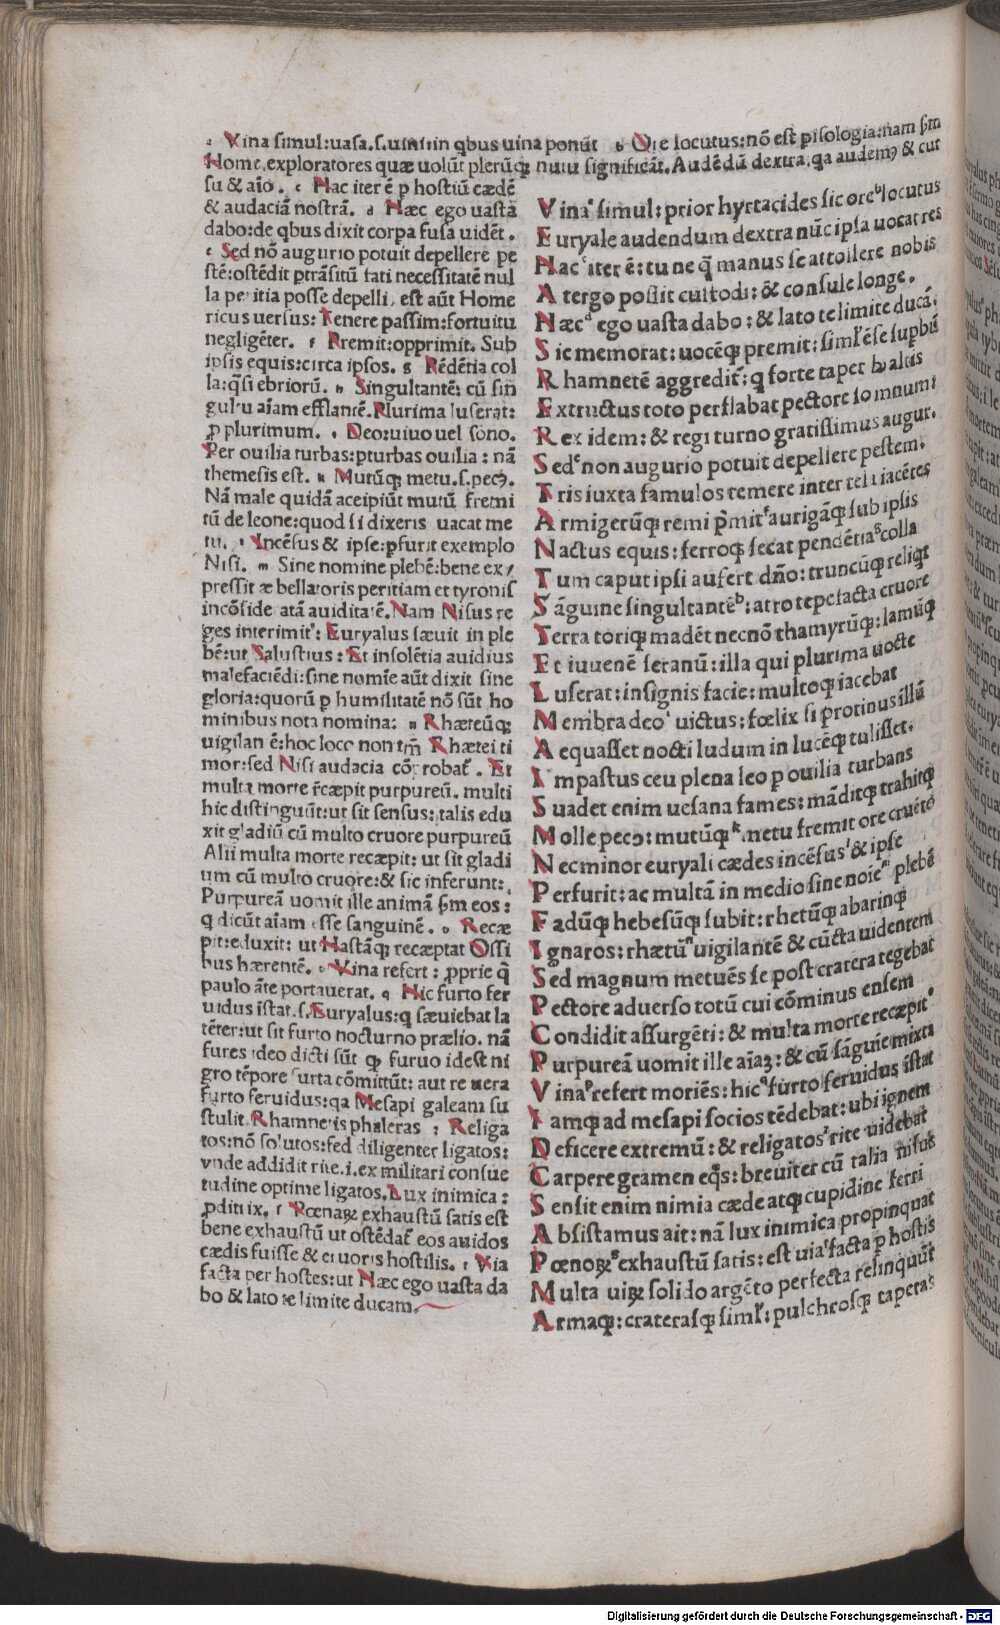 a Vina simul:uasa.s.uini:in qbus uina ponũt b Ore locutus:nõ est pisologia:nam ẜm
Home.exploratores quæ uolũt plerũqꝫ nutu significãt. Audẽdũ dextra.qa audemꝰ & cut
su & aĩo . c Hac iter ẽ p hostiũ cædẽ
& audaciã nostrã. d Hæc ego uasta
dabo:de qbus dixit corpa fusa uidẽt .
e Sed nõ augurio potuit depellere pe
stẽ:ostẽdit ptrãsitũ fati necessitatẽ nul
la peritia posse depelli. est aũt Home
ricus uersus: Temere passim:fortuitu
negligẽter. f Premit:opprimit. Sub
ipsis equis:circa ipsos. g Pẽdẽtia col
la:q̃si ebriorũ. h Singultantẽ: cũ sin
gultu aĩam efflantẽ.Plurima luserat:
ꝓ plurimum. i Deo:uiuo uel sono.
Per ouilia turbas:pturbas ouilia : nã
themesis est. k Mutũqꝫ metu.s.pecꝯ.
Nã male quidã accipiũt mutũ fremi
tũ de leone:quod si dixeris uacat me
tu. l Incẽsus & ipse:pfurit exemplo
Nisi. m Sine nomine plebẽ:bene ex/
pressit & bellatoris peritiam et tyronis
incõsideratã auiditatẽ.Nam Nisus re
ges interimit: Euryalus sæuit in ple
bẽ:ut Salustius : Et insolẽtia auidius
malefaciẽdi:sine nomĩe aũt dixit sine
gloria:quorũ p humilitatẽ nõ sũt ho
minibus nota nomina: n Rhæteũqꝫ
uigilantẽ:hoc loco non tm̃ Rhætei ti
mor:sed Nisi audacia cõprobat . Et
multa morte r̃cæpit purpureũ. multi
hic distinguũt:ut sit sensus: talis edu
xit gladiũ cũ multo cruore purpureũ
Alii multa morte recæpit: ut sit gladi
um cũ multo cruore:& sic inferunt:
Purpureã uomit ille animã ẜm eos:
q dicũt aĩam esse sanguinẽ. o Recæ
pit:eduxit: ut Hastãqꝫ recæptat Ossi
bus hærentẽ. p Vina refert : ꝓprie q̃
paulo ãte portauerat. q Hic furto fer
uidus ĩstat.s.Euryalus:q sæuiebat la
tẽter:ut sit furto nocturno prælio. nã
fures ideo dicti sũt qꝫ furuo idest ni
gro tẽpore furta cõmittũt: aut re uera
furto feruidus:qa Mesapi galeam su
stulit Rhamnetis phaleras r Religa
tos:nõ solutos:sed diligenter ligatos:
vnde addidit rite.i.ex militari consue
tudine optime ligatos.Lux inimica :
ꝓditrix. s Pœnaꝝ exhaustũ satis est
bene exhaustũ ut ostẽdat eos auidos
cædis fuisse & cruoris hostilis. t Via
facta per hostes:ut Hæc ego uasta da
bo & lato te limite ducam.
Vina simul: prior hyrtacides sic ore locutus
Euryale audendum dextra nũc ipsa uocat res
Hac iter ẽ: tu ne q̃ manus se attollere nobis
A tergo possit custodi: & consule longe.
Hæc ego uasta dabo: & lato te limite ducã.
Sic memorat: uocẽqꝫ premit: siml̃ ẽse supbũ
Rhamnetẽ aggredit: q forte tapet haltis
Extructus toto perflabat pectore somnum:
Rex idem: & regi turno gratissimus augur.
Sed non augurio potuit depellere pestem.
Tris iuxta famulos temere inter tela iacẽtes
Armigerũqꝫ remi p̃mit aurigãqꝫ sub ipsis
Nactus equis: ferroqꝫ secat pendẽtia colla
Tum caput ipsi aufert dño: truncũqꝫ reliqt
Sãguine singultantẽ: atro tepefacta cruore
Terra toriqꝫ madẽt necnõ thamyrũqꝫ: lamũqꝫ
Et iuuenẽ seranũ: illa qui plurima nocte
Luserat: insignis facie: multoqꝫ iacebat
Membra deo uictus: fœlix si protinus illũ
Aequasset nocti ludum in lucẽqꝫ tulisset.
Impastus ceu plena leo p ouilia turbans
Suadet enim uesana fames: mãditqꝫ trahitqꝫ
Molle pecꝯ: mutũqꝫ metu fremit ore cruẽto
Nec minor euryali cædes incẽsus & ipse
Perfurit: ac multã in medio sine noĩe plebẽ
Fadũqꝫ hebesũqꝫ subit: rhetũqꝫ abarinqꝫ
Ignaros: rhætũ uigilantẽ & cũcta uidentem
Sed magnum metuẽs se post cratera tegebat
Pectore aduerso totũ cui cõminus ensem
Condidit assurgẽti: & multa morte recæpit
Purpureã uomit ille aĩaꝫ: & cũ sãguie mixta
Vina refert moriẽs: hic furto feruidus ĩstat
Iamqꝫ ad mesapi socios tẽdebat: ubi ignem
Deficere extremũ: & religatos rite uidebat
Carpere gramen eq̃s: breuiter cũ talia nisus
Sensit enim nimia cæde atqꝫ cupidine ferri
Absistamus ait: nã lux inimica propinquat
Pœnoꝝ exhaustũ satis: est uia facta p hostis
Multa uiꝝ solido argẽto perfecta relinquũt
Armaqꝫ: craterasqꝫ siml̃: pulchrosqꝫ tapetas
Digitalisierung gefördert durch die Deutsche Forschungsgemeinschaft - DFG